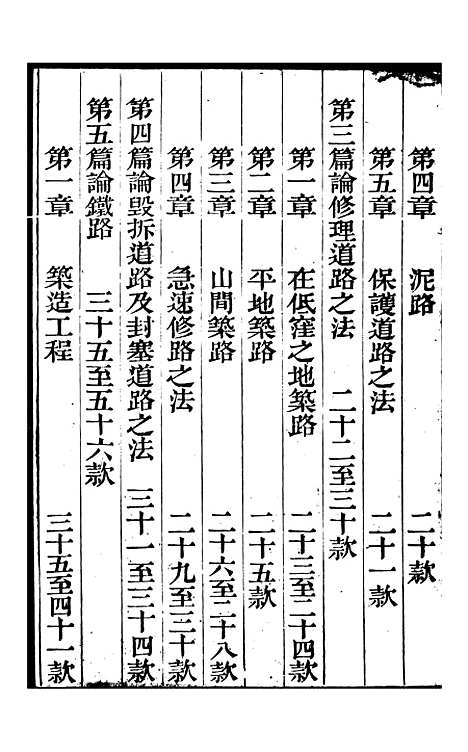 第四章 泥路 二十款
第五章 保護道路之法 二十一款
第三篇論修理道路之法 二十二至三十款
第一章 在低窪之地築路 二十三至二十四款
第二章 平地築路 二十五款
第三章 山間築路 二十六至二十八款
第四章 急速修路之法 二十九至三十款
第四篇論毀拆道路及封塞道路之法 三十一至三十四款
第五篇論鐵路 三十五至五十六款
第一章 築造工程 三十五至四十一款